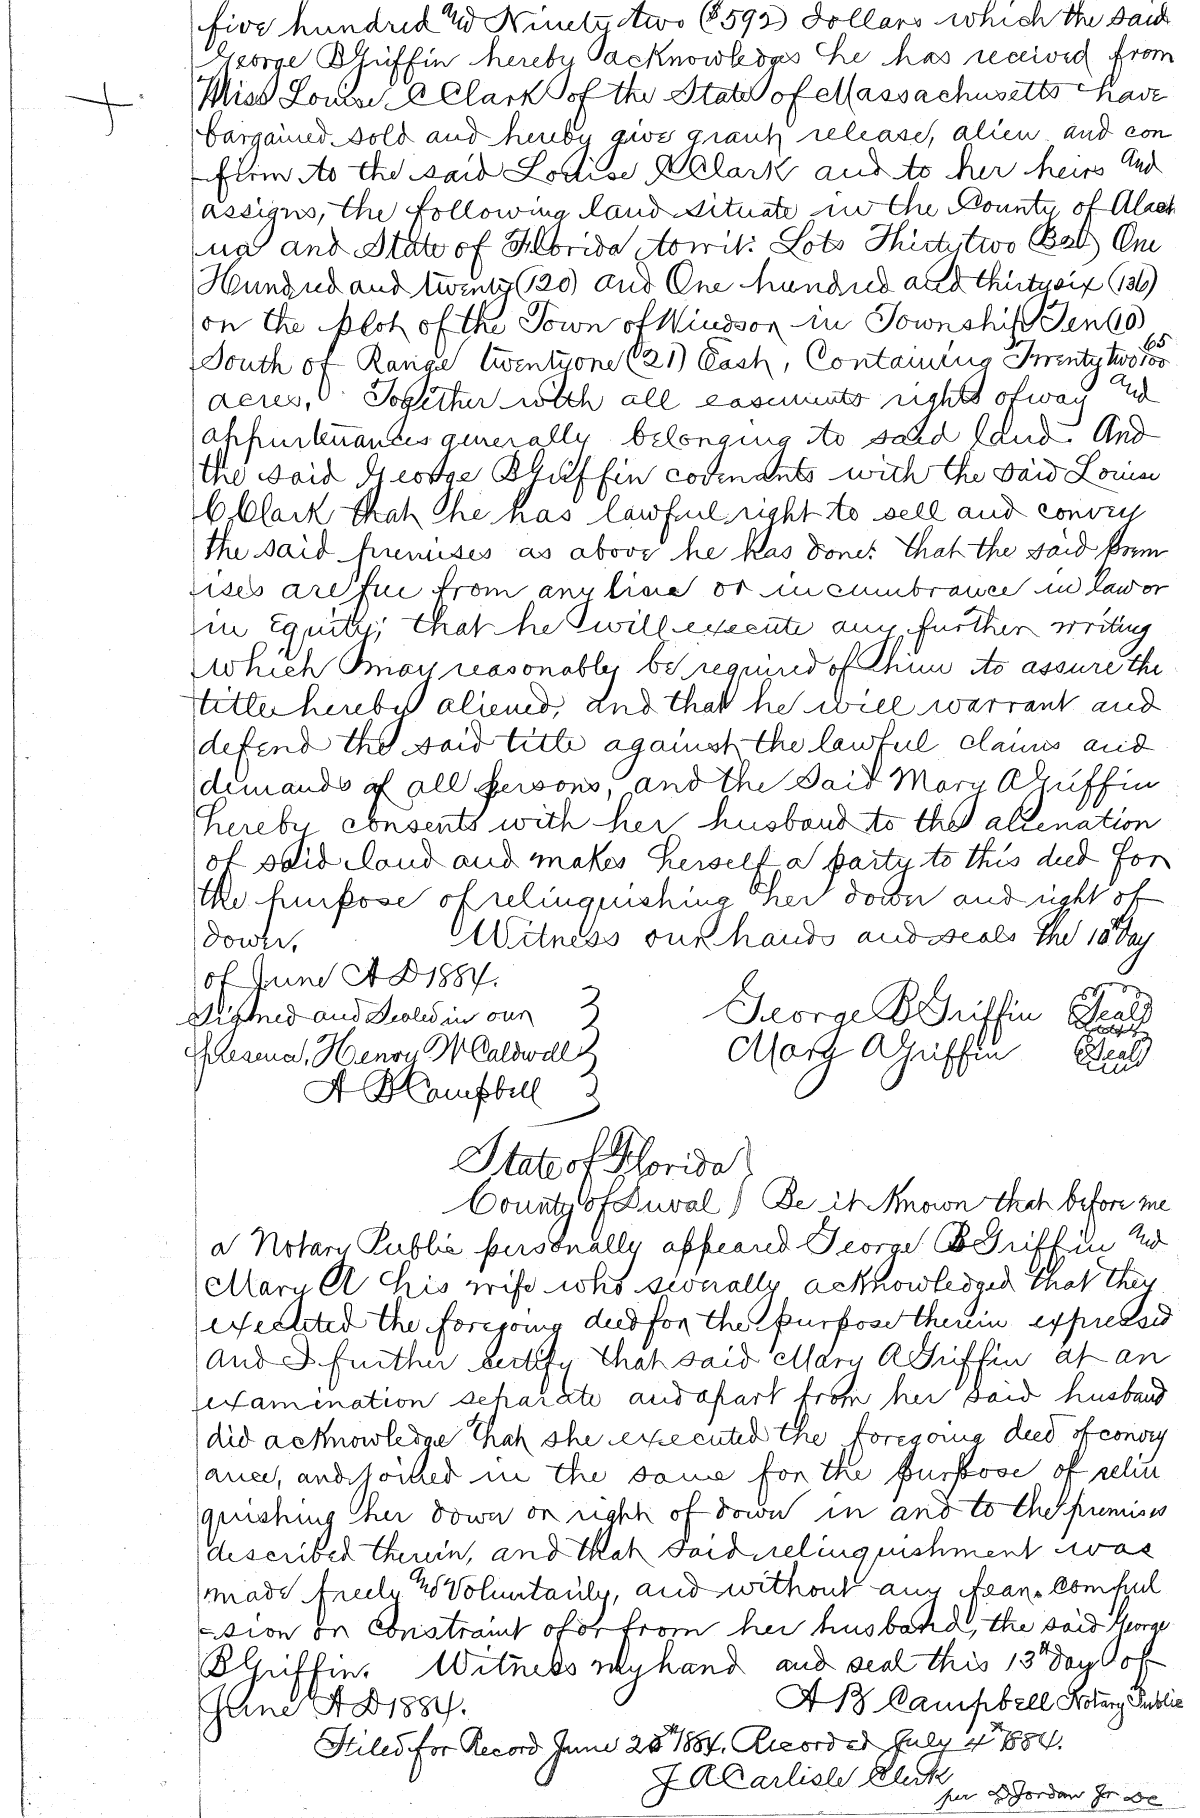 five hundred and Ninety two ($592) dollars which the said
George B Griffin hereby acknowledges he has received from
Miss Louise C Clark of the State of Massachusetts have
bargained sold and hereby give grant release, alien and con
firm to the said Louise C Clark and to her heirs and
assigns, the following land situate in the County of Alach
ua and State of Florida towit: Lots Thirtytwo (32) One
Hundred and twenty (120) and One hundred and thirtysix (136)
on the plot of the Town of Windsor in Township Ten (10)
South of Range twentyone (21) East, Containing Twentytwo 65/100
acres, Together with all easements rights of way and
appurtenances generally belonging to said land. And
the said George B Griffin covenants with the said Louise
C. Clark that he has lawful right to sell and convey
the said premises as above he has done: that the said prem
ises are free from any line or incumbrance in law or
in Equity; that he will execute any further writing
which may reasonably be required of him to assure the
title hereby aliened, and that he will warrant and
defend the said title against the lawful claims and
demands of all persons, and the said Mary A Griffin
hereby consents with her husband to the alienation
of said land and makes herself a party to this deed for
the purpose of relinquishing her dower and right of
dower. Witness our hands and seals the day
of June A D 1884.
Signed and Sealed in our George B Griffin Seal
presence, Henry W Caldwell Mary A Griffin Seal
A B Campbell
State of Florida
County of Duval ) Be it Known that before me
a Notary Public personally appeared George B Griffin and
Mary A his wife who severally acknowledged that they
executed the foregoing deed for the purpose therein expressed
and I further certify that said Mary A Griffin at an
examination separate and apart from her said husband
did acknowledge that she executed the foregoing deed of convey
ance, and joined in the same for the purpose of relin
quishing her dower or right of dower in and to the premises
described therein, and that said relinquishment was
made freely and Voluntarily, and without any fear. compul
-sion or constraint of or from her husband, the said George
B Griffin. Witness my hand and seal this 13th day of
June A D 1884. A B Campbell Notary Public
Filed for Record June 1884. Recorded July 4th 1884.
J A Carlisle Clerk
per D Jordan Jr DC